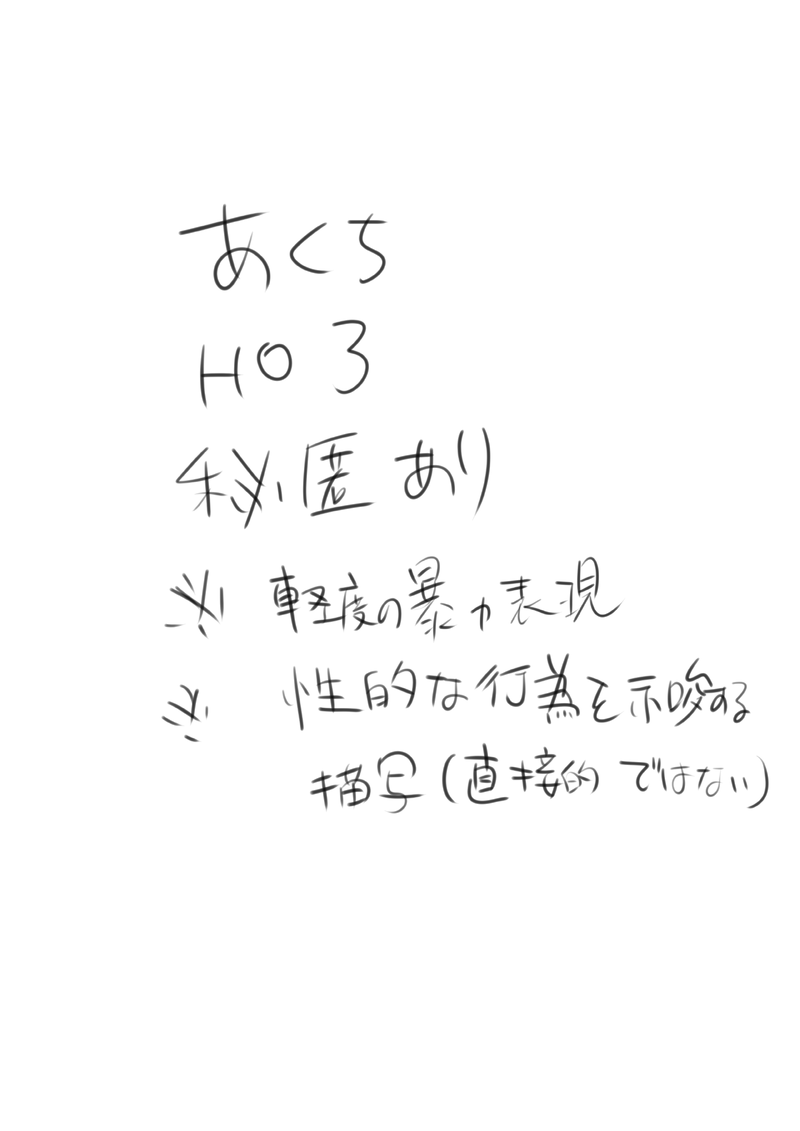 あくち
HO3
秘匿あり
※ 軽度の暴力表現
※ 性的な行為を示唆する
描写(直接的ではない)